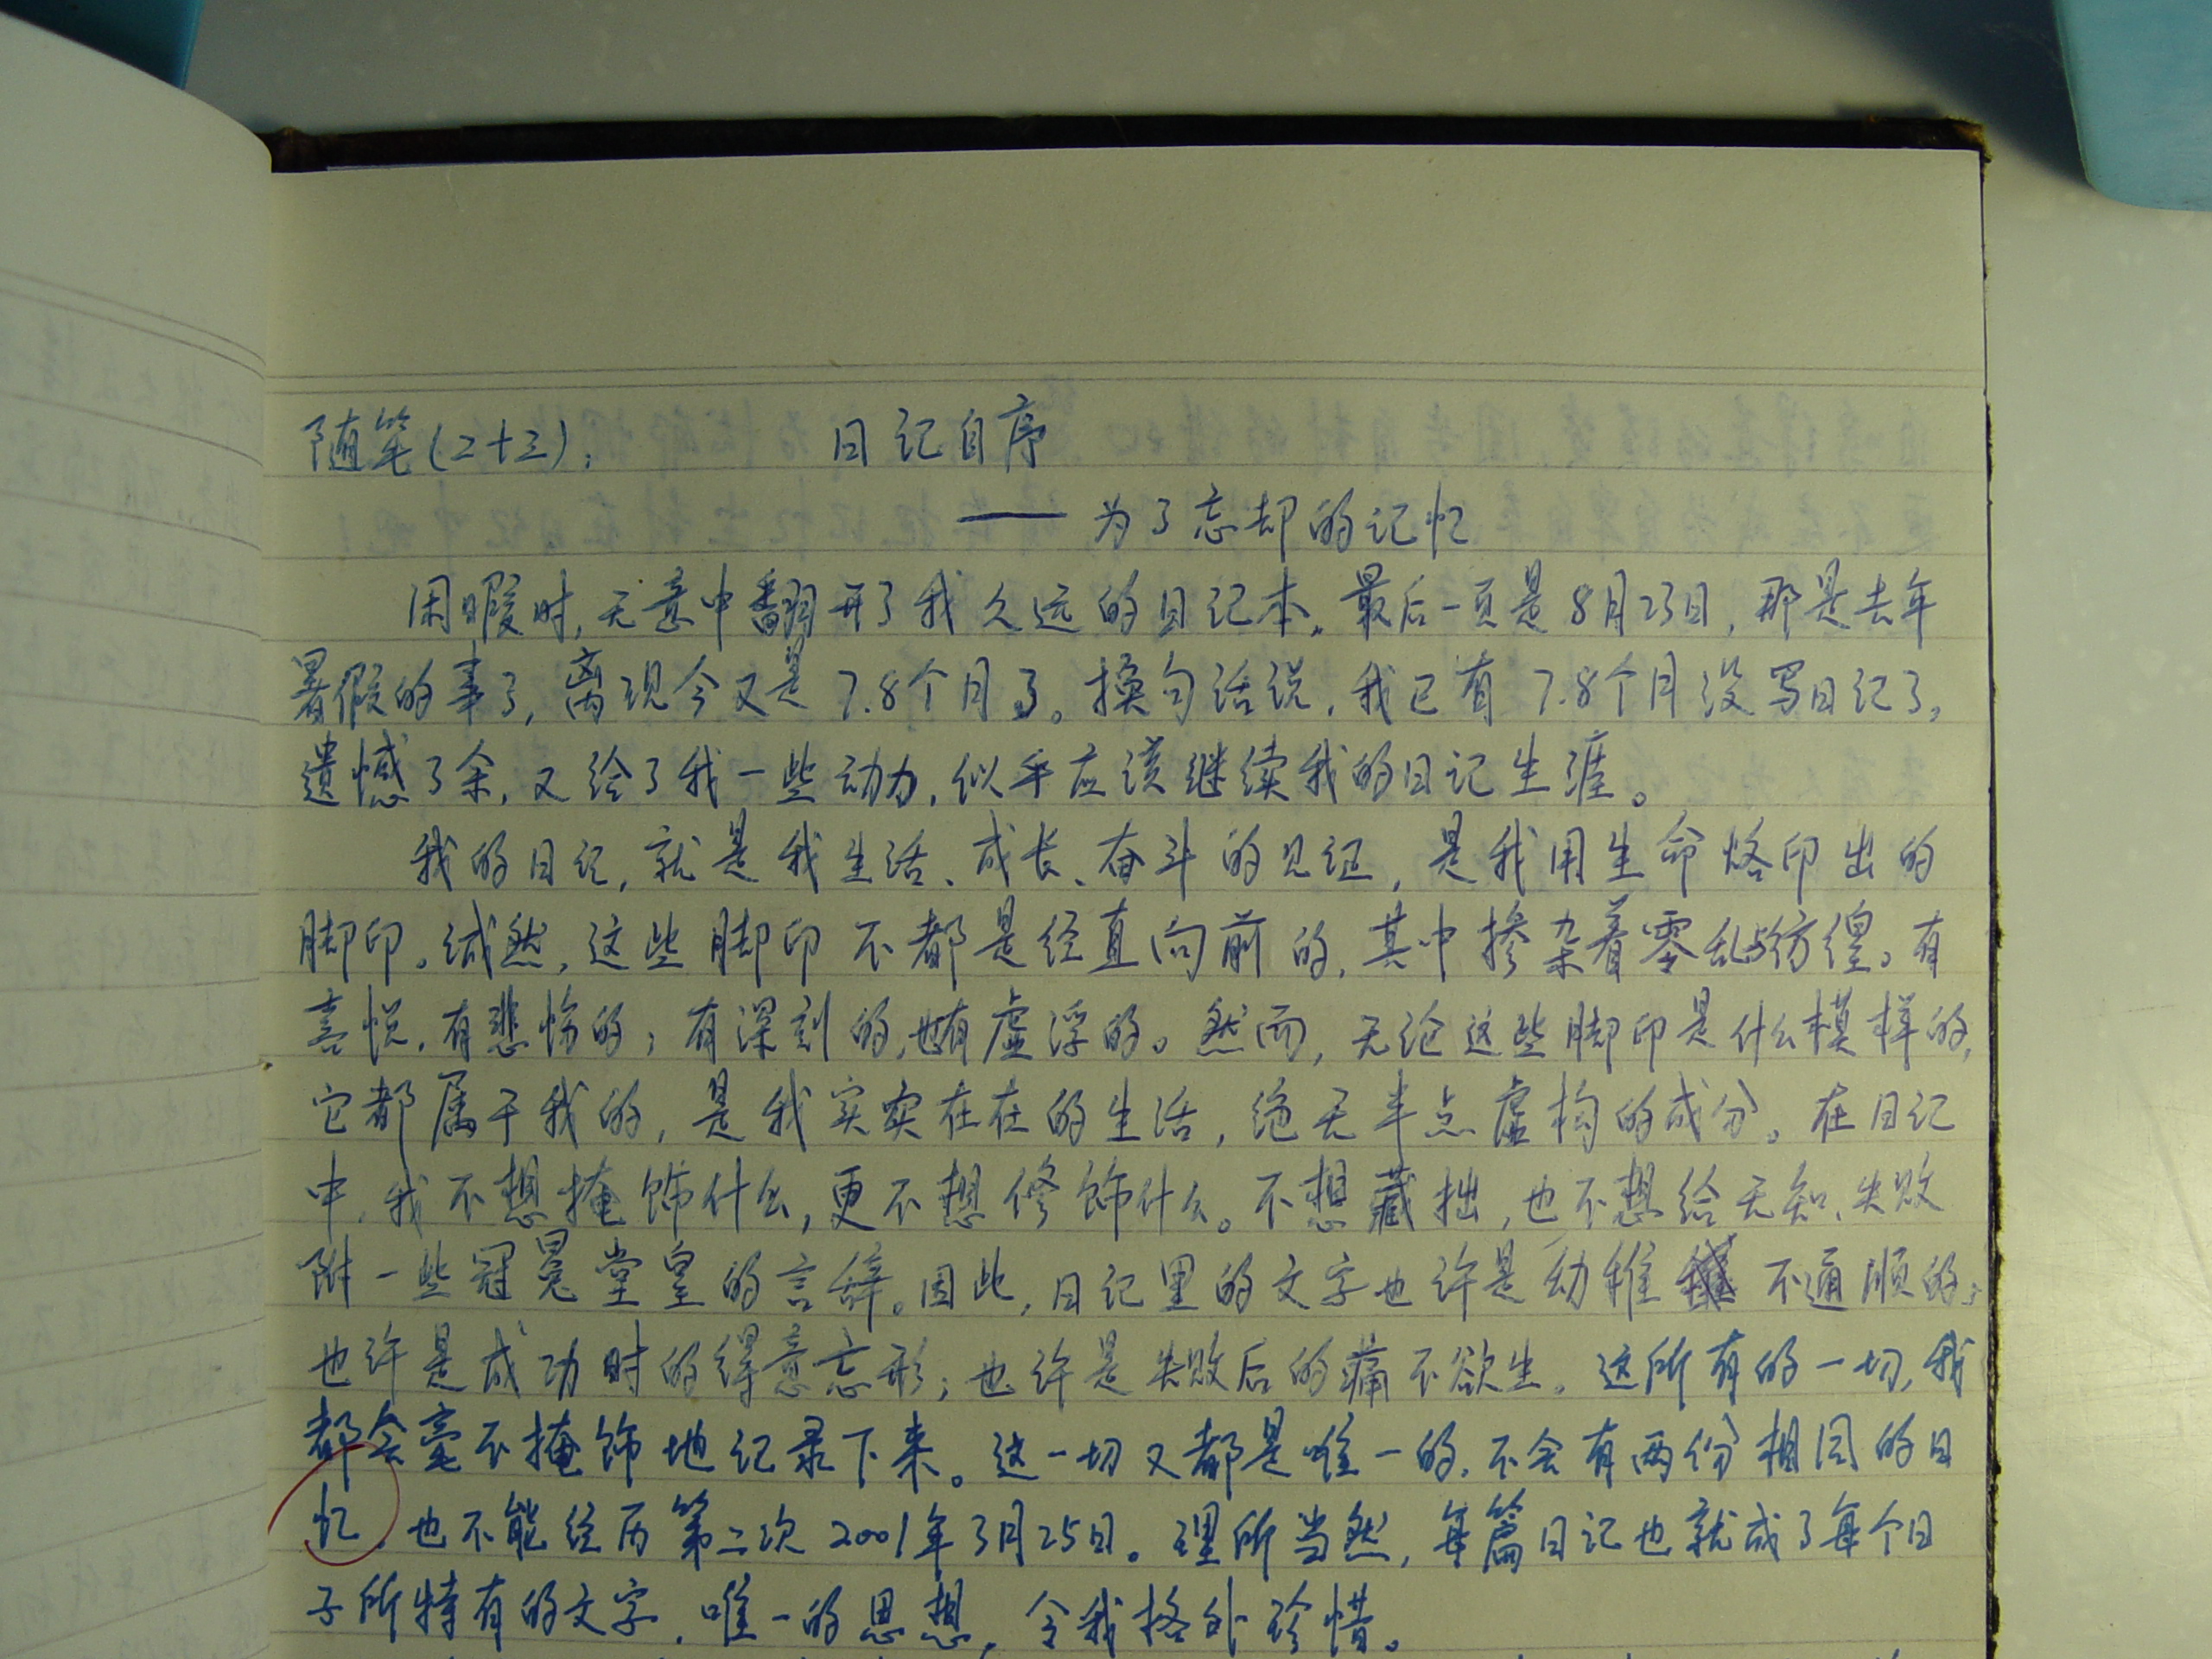 随笔(二十三):　日记自序
——为了忘却的记忆
闲暇时,无意中翻开了我久远的日记本。最后一页是8月23日,那是去年
暑假的事了,离现今又是7.8个月了。换句话说,我已有7.8个月没写日记了,
遗憾了余,又给了我一些动力,似乎应该继续我的日记生涯。
我的日记,就是我生活、成长、奋斗的见证,是我用生命烙印出的
脚印。诚然,这些脚印不都是径直向前的,其中掺杂着零乱与彷徨。有
喜悦,有悲伤的;有深刻的,也有虚浮的。然而,无论这些脚印是什么模样的,
它都属于我的,是我实实在在的生活,绝无半点虚构的成分。在日记
中,我不想掩饰什么,更不想修饰什么。不想藏拙,也不想给无知、失败
附一些冠冕堂皇的言辞。因此,日记里的文字也许是幼稚不通顺的;
也许是成功时的得意忘形;也许是失败后的痛不欲生。这所有的一切,我
都会毫不掩饰地记录下来。这一切又都是唯一的,不会有两份相同的日
忆,也不能经历第二次2001年3月25日。理所当然,每篇日记也就成了每个日
子所特有的文字,唯一的思想,令我格外珍惜。